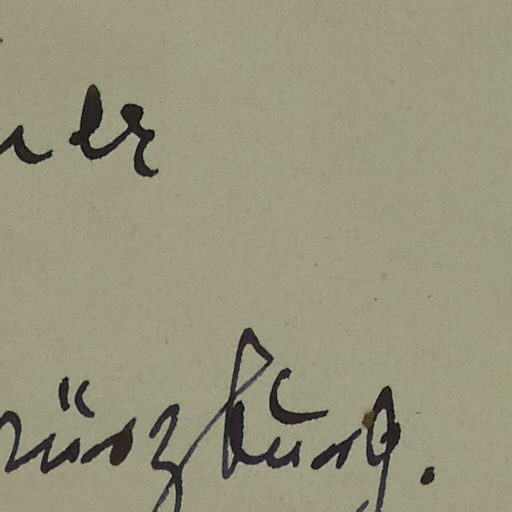 ner
ürzburg.